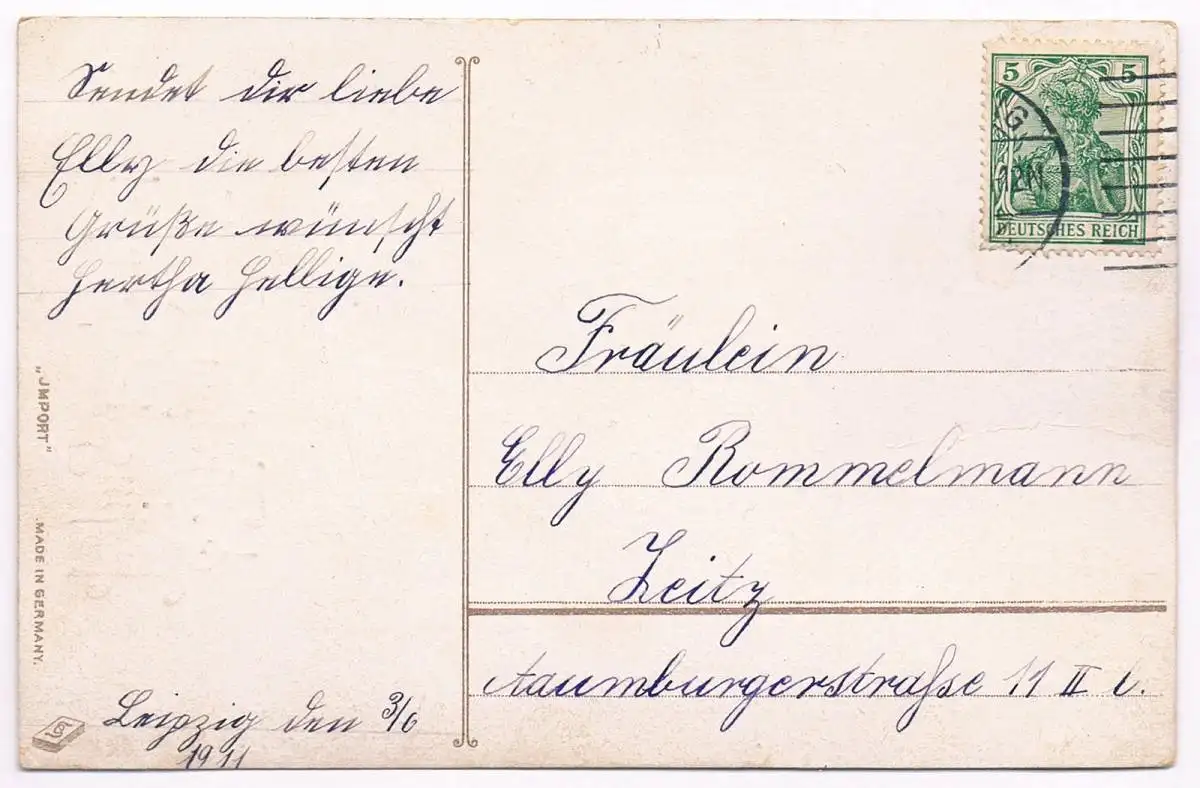 Sendet dir liebe
Elly die besten
Grüße wünscht
Hertha Hellige.
"JMPORT"
MADE IN GERMANY.
Leipzig den 3/6
1911
5 5
G
12N
DEUTSCHES REICH
Fräulein
Elly Rommelmann
Zeitz
Naumburgerstraße 11 II l.